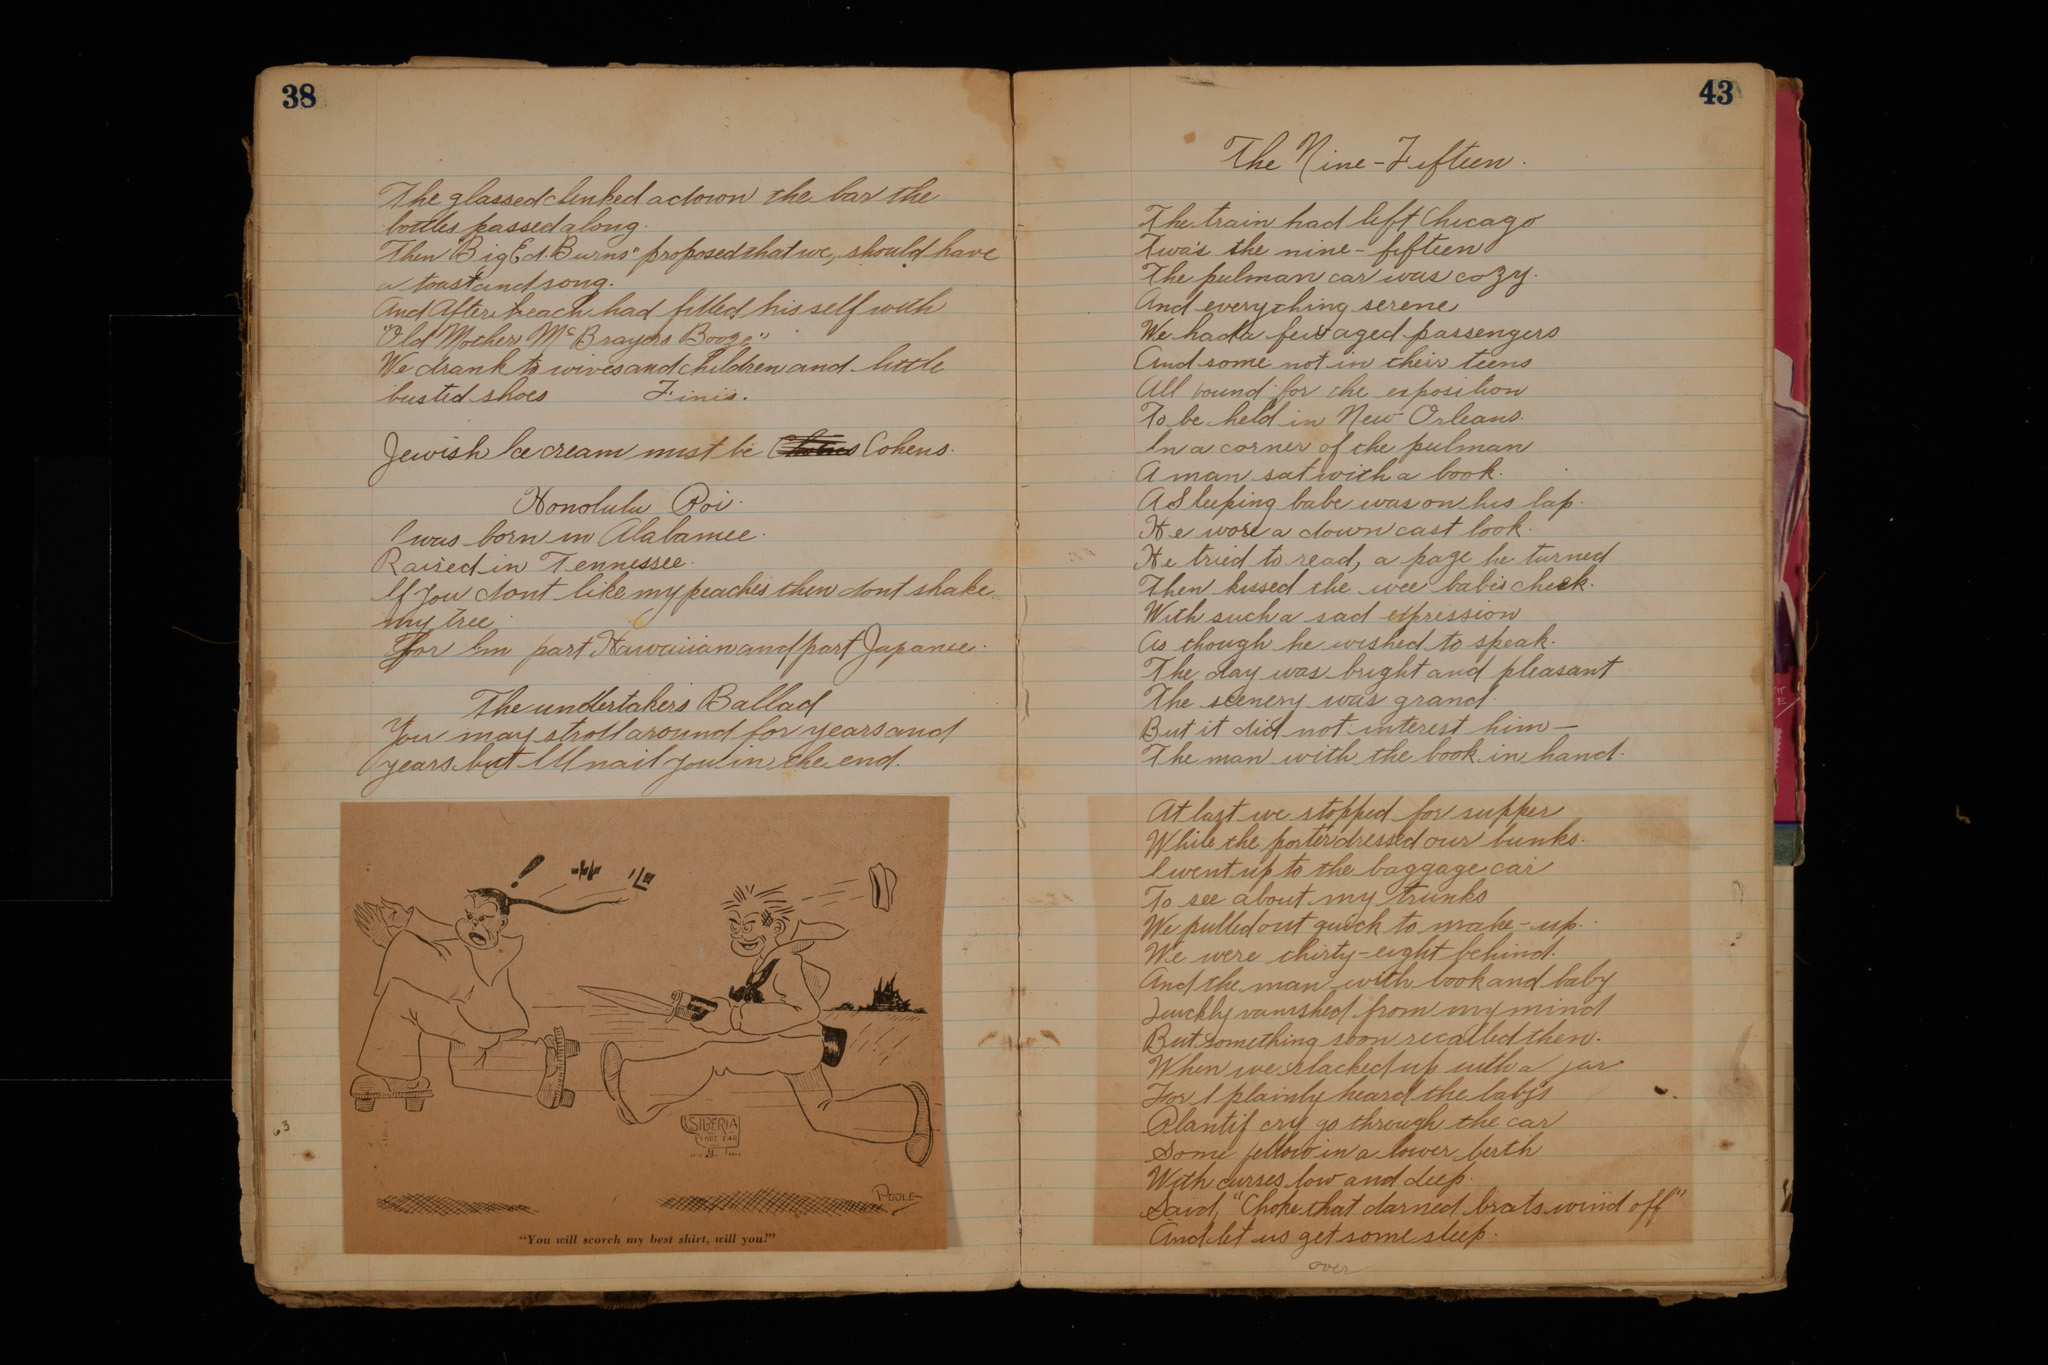 38
The glassed clinked adown the bar the
bottles passed along.
Then Big Ed. Burns" proposed that we, should have
a toast and song.
And After each had filled his self with
"Old Mother McBrayers Booze"
We drank to wives and children and little
busted shoes Finis.
Jewish Ice cream must be Cohens.
Honolulu Poi.
I was born in Alabamee.
Raised in Tennessee.
If you dont like my peaches then dont shake
my tree.
For Im part Hawaiiian and part Japanee.
The undertakers Ballad
You may stroll around for years and
years but Ill nail you in the end.
!
SIBERIA
NOT FAR
POOLE
"You will scorch my best shirt, will you!"
63
43
The Nine-Fifteen.
The train had left Chicago
Twas the nine-fifteen
The pulman car was cozy.
And everything serene
We had a few aged passengers
And some not in their teens
All bound for the exposition
To be held in New-Orleans.
In a corner of the pulman
A man sat with a book.
A Sleeping babe was on his lap.
He wore a down cast look.
He tried to read, a page he turned
Then kissed the wee babis cheek.
With such a sad expression
As though he wished to speak.
The day was bright and pleasant
The scenery was grand.
But it did not interest him—
The man with the book in hand.
At last we stopped for supper
While the porter dressed our bunks.
I went up to the baggage car
To see about my trunks
We pulled out quick to make-up.
We were thirty-eight behind.
And the man with book and baby
Quickly vanished from my mind
But something soon recalled then.
When we slacked up with a jar
For I plainly heard the babys
Plantif cry go through the car
Some fellow in a lower berth
With curses low and deep.
Said, "Choke that darned brats wind off"
And let us get some sleep.
over